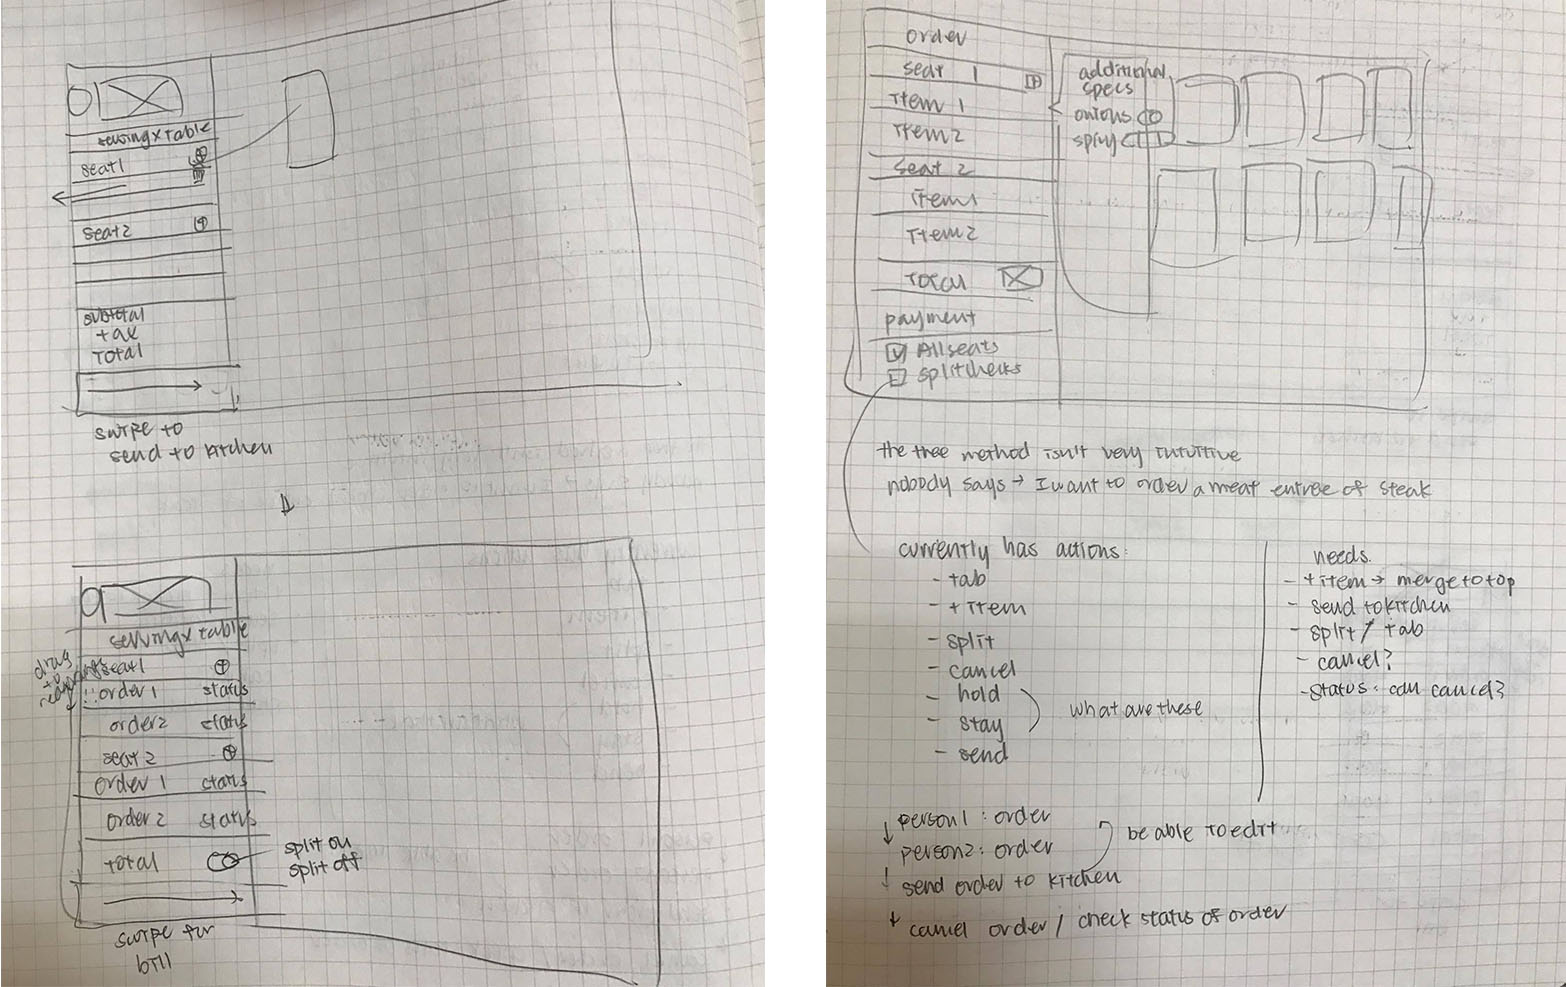 serving x table
seat 1
seat 2
subtotal
tax
total
swipe to
send to kitchen
serving x table
drag
to
seat 1
order 1 status
order 2 status
seat 2
order 1 status
order 2 status
total
split on
split off
swipe for
bill
order
seat 1
item 1
item 2
seat 2
item 1
item 2
total
payment
All seats
split checks
additional
specs
onions
spicy
the tree method isn't very intuitive
nobody says → I want to order a meat entree of steak
currently has actions:
- tab
- + item
- split
- cancel
- hold
- stay
- send
what are these
needs.
- + item → merge to top
- send to kitchen
- split / tab
- cancel?
- status: can cancel?
↓ person 1 : order
↓ person 2 : order
be able to edit
↓ send order to kitchen
↓ cancel order / check status of order